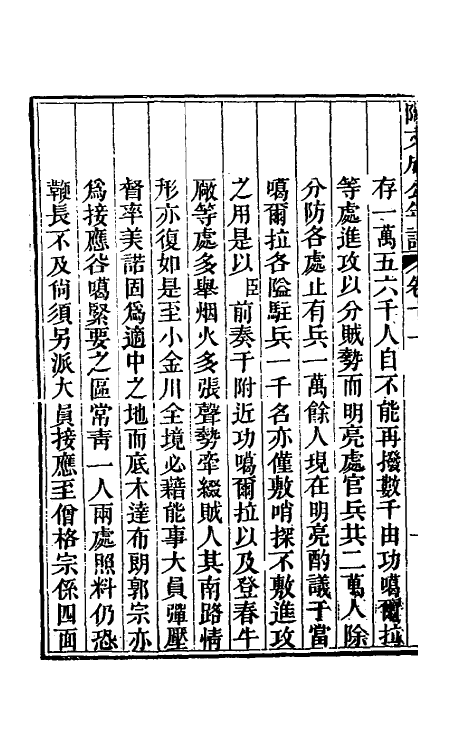 存一萬五六千人自不能再撥數千由功噶爾拉
等處進攻以分賊勢而明亮處官兵共二萬人除
分防各處止有兵一萬餘人現在明亮酌議于當
噶爾拉各隘駐兵一千名亦僅敷哨探不敷進攻
之用是以臣前奏于附近功噶爾拉以及登春牛
廠等處多舉烟火多張聲勢牽綴賊人其南路情
形亦復如是至小金川全境必藉能事大員彈壓
督率美諾固爲適中之地而底木達布朗郭宗亦
爲接應谷噶緊要之區常青一人兩處照料仍恐
鞭長不及尙須另派大員接應至僧格宗係四面